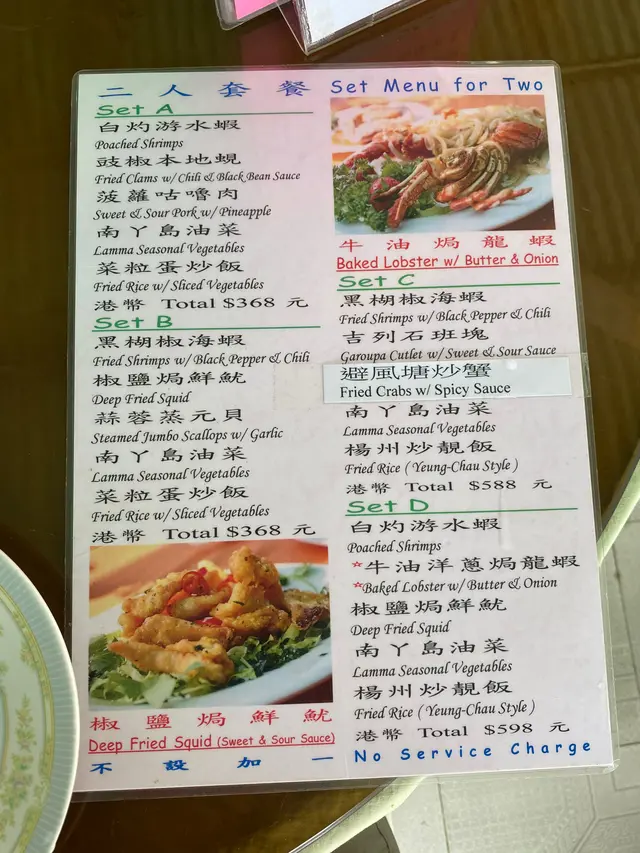 二人套餐 Set Menu for Two
Set A
白灼游水蝦
Poached Shrimps
豉椒本地蜆
Fried Clams w/ Chili & Black Bean Sauce
菠蘿咕嚕肉
Sweet & Sour Pork w/ Pineapple
南丫島油菜
Lamma Seasonal Vegetables
菜粒蛋炒飯
Fried Rice w/ Sliced Vegetables
港幣 Total $368 元
Set B
黑椒椒海蝦
Fried Shrimps w/ Black Pepper & Chili
椒鹽焗鮮魷
Deep Fried Squid
蒜蓉蒸元貝
Steamed Jumbo Scallops w/ Garlic
南丫島油菜
Lamma Seasonal Vegetables
菜粒蛋炒飯
Fried Rice w/ Sliced Vegetables
港幣 Total $368 元
椒鹽焗鮮魷
Deep Fried Squid (Sweet & Sour Sauce)
牛油焗龍蝦
Baked Lobster w/ Butter & Onion
Set C
黑椒椒海蝦
Fried Shrimps w/ Black Pepper & Chili
吉列石班塊
Garoupa Cutlet w/ Sweet & Sour Sauce
避風塘炒蟹
Fried Crabs w/ Spicy Sauce
南丫島油菜
Lamma Seasonal Vegetables
楊州炒靚飯
Fried Rice ( Yeung-Chau Style )
港幣 Total $588 元
Set D
白灼游水蝦
Poached Shrimps
*牛油洋蔥焗龍蝦
*Baked Lobster w/ Butter & Onion
椒鹽焗鮮魷
Deep Fried Squid
南丫島油菜
Lamma Seasonal Vegetables
楊州炒靚飯
Fried Rice ( Yeung-Chau Style )
港幣 Total $598 元
不設加一 No Service Charge